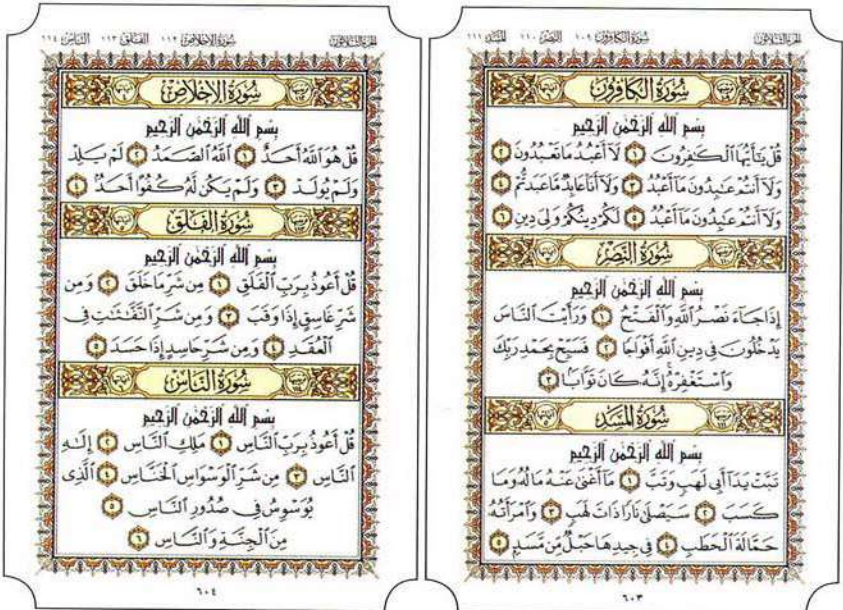 الجزء الثلاثون سورة الكافرون ١٠٩ النصر ١١٠ المسد ١١١
سورة الكافرون
بسم الله الرحمن الرحيم
قُلْ يَٰٓأَيُّهَا ٱلْكَٰفِرُونَ ١ لَآ أَعْبُدُ مَا تَعْبُدُونَ ٢
وَلَآ أَنتُمْ عَٰبِدُونَ مَآ أَعْبُدُ ٣ وَلَآ أَنَا۠ عَابِدٌ مَّا عَبَدتُّمْ ٤
وَلَآ أَنتُمْ عَٰبِدُونَ مَآ أَعْبُدُ ٥ لَكُمْ دِينُكُمْ وَلِىَ دِينِ ٦
سورة النصر
بسم الله الرحمن الرحيم
إِذَا جَآءَ نَصْرُ ٱللَّهِ وَٱلْفَتْحُ ١ وَرَأَيْتَ ٱلنَّاسَ
يَدْخُلُونَ فِى دِينِ ٱللَّهِ أَفْوَاجًا ٢ فَسَبِّحْ بِحَمْدِ رَبِّكَ
وَٱسْتَغْفِرْهُ إِنَّهُۥ كَانَ تَوَّابًۢا ٣
سورة المسد
بسم الله الرحمن الرحيم
تَبَّتْ يَدَآ أَبِى لَهَبٍ وَتَبَّ ١ مَآ أَغْنَىٰ عَنْهُ مَالُهُۥ وَمَا
كَسَبَ ٢ سَيَصْلَىٰ نَارًا ذَاتَ لَهَبٍ ٣ وَٱمْرَأَتُهُۥ
حَمَّالَةَ ٱلْحَطَبِ ٤ فِى جِيدِهَا حَبْلٌ مِّن مَّسَدٍۭ ٥
٦٠٣
الجزء الثلاثون سورة الإخلاص ١١٢ الفلق ١١٣ الناس ١١٤
سورة الإخلاص
بسم الله الرحمن الرحيم
قُلْ هُوَ ٱللَّهُ أَحَدٌ ١ ٱللَّهُ ٱلصَّمَدُ ٢ لَمْ يَلِدْ
وَلَمْ يُولَدْ ٣ وَلَمْ يَكُن لَّهُۥ كُفُوًا أَحَدٌۢ ٤
سورة الفلق
بسم الله الرحمن الرحيم
قُلْ أَعُوذُ بِرَبِّ ٱلْفَلَقِ ١ مِن شَرِّ مَا خَلَقَ ٢ وَمِن
شَرِّ غَاسِقٍ إِذَا وَقَبَ ٣ وَمِن شَرِّ ٱلنَّفَّٰثَٰتِ فِى
ٱلْعُقَدِ ٤ وَمِن شَرِّ حَاسِدٍ إِذَا حَسَدَ ٥
سورة الناس
بسم الله الرحمن الرحيم
قُلْ أَعُوذُ بِرَبِّ ٱلنَّاسِ ١ مَلِكِ ٱلنَّاسِ ٢ إِلَٰهِ
ٱلنَّاسِ ٣ مِن شَرِّ ٱلْوَسْوَاسِ ٱلْخَنَّاسِ ٤ ٱلَّذِى
يُوَسْوِسُ فِى صُدُورِ ٱلنَّاسِ ٥
مِنَ ٱلْجِنَّةِ وَٱلنَّاسِ ٦
٦٠٤